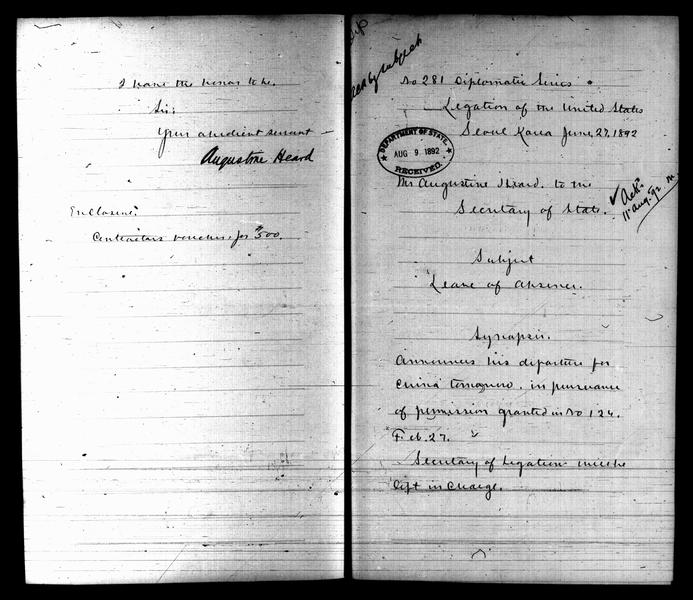 I have the honor to be.
Sir;
Your obedient servant —
Augustine Heard
Enclosure:
Contractors voucher for $500.
Dip
by subject
No 281 Diplomatic Series.
Legation of the United States
Seoul Korea June, 27, 1892
DEPARTMENT OF STATE.
AUG 9 1892
RECEIVED.
Mr Augustine Heard. to the
Secretary of State.
✓ Ack?
11 Aug. 92
Subject
Leave of Absence.
Synopsis.
Announces his departure for
China tomorrow. in pursuance
of permission granted in No 124.
Feb. 27.
Secretary of Legation will be
left in Charge.